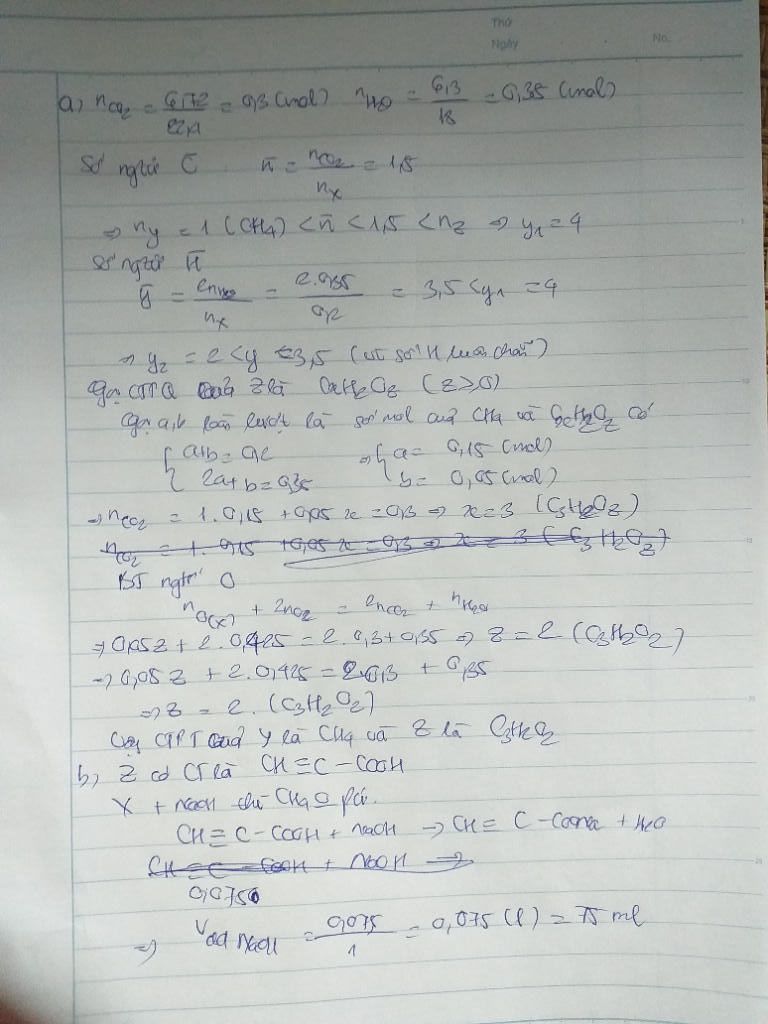 Thứ
Ngày No.
a) nCO2 = 6,72/22,4 = 0,3 (mol) nH2O = 6,3/18 = 0,35 (mol)
Số ngtử C̄ n̄ = nCO2/nX = 1,5
⇒ ny = 1 (CH4) < n̄ < 1,5 < nZ ⇒ y1 = 4
Số ngtử H̄
ȳ = 2nH2O/nX = 2.0,35/0,2 = 3,5 < y1 = 4
⇒ y2 = 2 < y < 3,5 (vì số H luôn chẵn)
Gọi CTTQ của Z là CxH2Oz (z ≥ 0)
Gọi a,b lần lượt là số mol của CH4 và CxH2Oz có
{ a+b = 0,2 ⇒ { a = 0,15 (mol)
2a+b = 0,35 b = 0,05 (mol)
⇒ nCO2 = 1.0,15 + 0,05x = 0,3 ⇒ x = 3 (C3H2Oz)
nCO2 = 1.0,15 + 0,05x = 0,3 ⇒ x = 3 (C3H2Oz)
BT ngtử O
nO(X) + 2nO2 = 2nCO2 + nH2O
⇒ 0,05z + 2.0,425 = 2.0,3 + 0,35 ⇒ z = 2 (C3H2O2)
⇒ 0,05z + 2.0,425 = 2.0,3 + 0,35
⇒ z = 2. (C3H2O2)
Vậy CTPT của Y là CH4 và Z là C3H2O2
b, Z có CT là CH≡C-COOH
X + NaOH thì CH4 0 pứ.
CH≡C-COOH + NaOH → CH≡C-COONa + H2O
CH≡C-COOH + NaOH →
0,0750
⇒ Vdd NaOH = 0,075/1 = 0,075 (l) = 75 ml